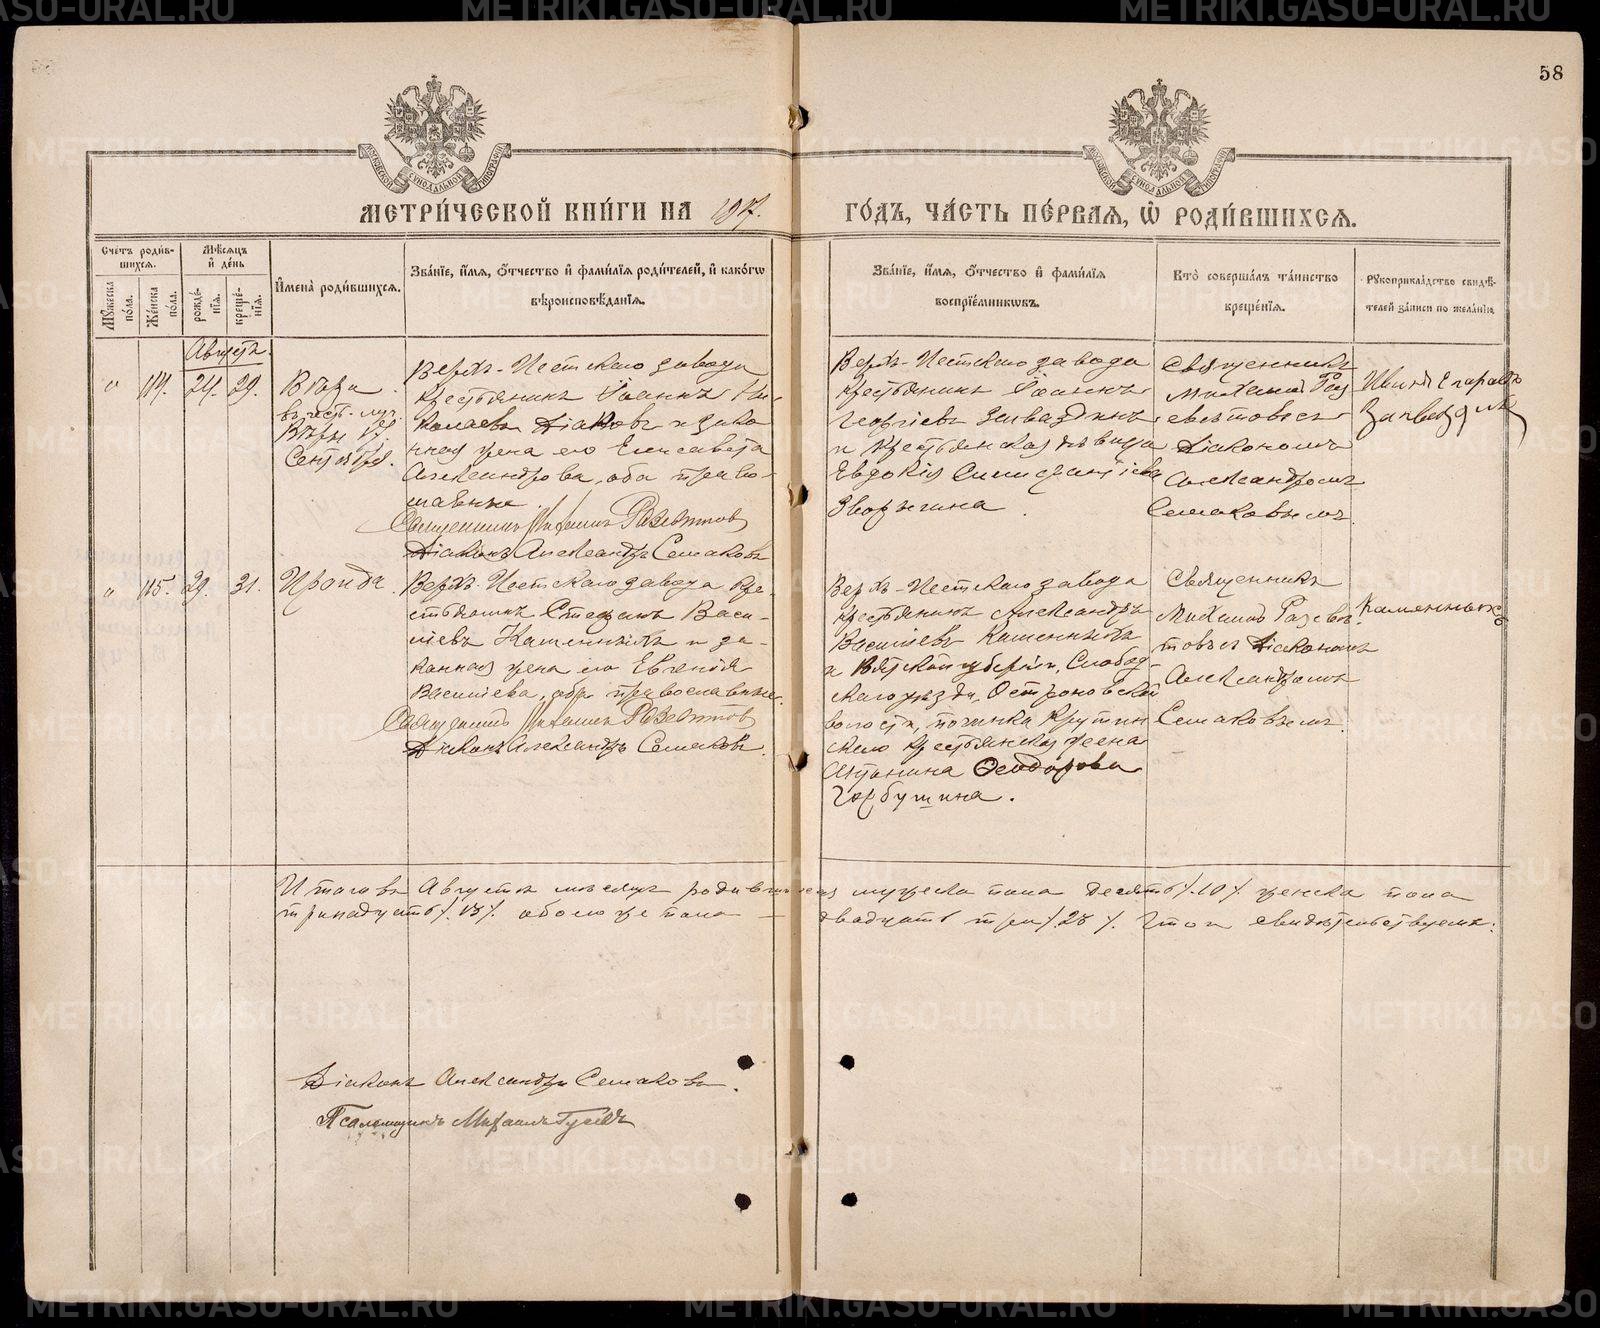 58
МЕТРИ́ЧЕСКОЙ КНИ́ГИ НА 1917. ГО́ДЪ, ЧА́СТЬ ПЕ́РВАЯ, Ѿ РОДИ́ВШИХСЯ.
Сче́тъ роди́в-
шихся.
Му́жеска по́ла.
Же́нска по́ла.
Мѣ́сяцъ
и҆ де́нь
рожде́-
нїя.
креще́-
нїя.
И҆мена̀ роди́вшихся.
Зва́нїе, и҆́мя, ѻ҆́тчество и҆ фами́лїя роди́телей, и҆ како́гѡ
вѣроисповѣ́данїя.
Зва́нїе, и҆́мя, ѻ҆́тчество и҆ фами́лїя
воспрїе́мникѡвъ.
Кто̀ соверша́лъ та́инство
креще́нїя.
Рꙋкоприкла́дство свидѣ́-
телей за́писи по жела́нїю
Августъ.
"
114.
24.
29.
Вѣра
въ честь муч.
Вѣры 17
Сентября.
Верхъ-Исетскаго завода
крестьянинъ Іоаннъ Ни-
колаевъ Діаковъ и закон-
ная жена его Елисавета
Александрова, оба право-
славные
Священникъ Михаилъ Разсвѣтовъ
Діаконъ Александръ Семаковъ
Верхъ-Исетскаго завода
крестьянинъ Іоаннъ
Георгіевъ
и крестьянская дѣвица
Евдокія
Зворыгина.
Священникъ
Михаилъ Раз
свѣтовъ съ
Діакономъ
Александромъ
Семаковымъ.
Иванъ Егоровъ
"
115.
29.
31.
Ираида.
Верхъ-Исетскаго завода кре-
стьянинъ Стефанъ Васи-
льевъ Каменныхъ и за-
конная жена его Евгенія
Васильева, оба православные.
Священникъ Михаилъ Разсвѣтовъ
Діаконъ Александръ Семаковъ.
Верхъ-Исетскаго завода
крестьянинъ Александръ
Васильевъ Каменныхъ
и Вятской губерніи, Слобод-
скаго уѣзда,
волости, починка Крутин
скаго крестьянская жена
Антонина Ѳеодорова
Горбушина.
Священникъ
Михаилъ Разсвѣ-
товъ съ Діакономъ
Александромъ
Семаковымъ.
Каменныхъ
Итого въ Августѣ мѣсяцѣ родившихся мужеска пола десять /.10 /. женска пола
тринадцать /.13/. обоего же пола — двадцать три /.23 /. Что и свидѣтельствуемъ:
Діаконъ Александръ Семаковъ.
Псаломщикъ Михаилъ Гусевъ